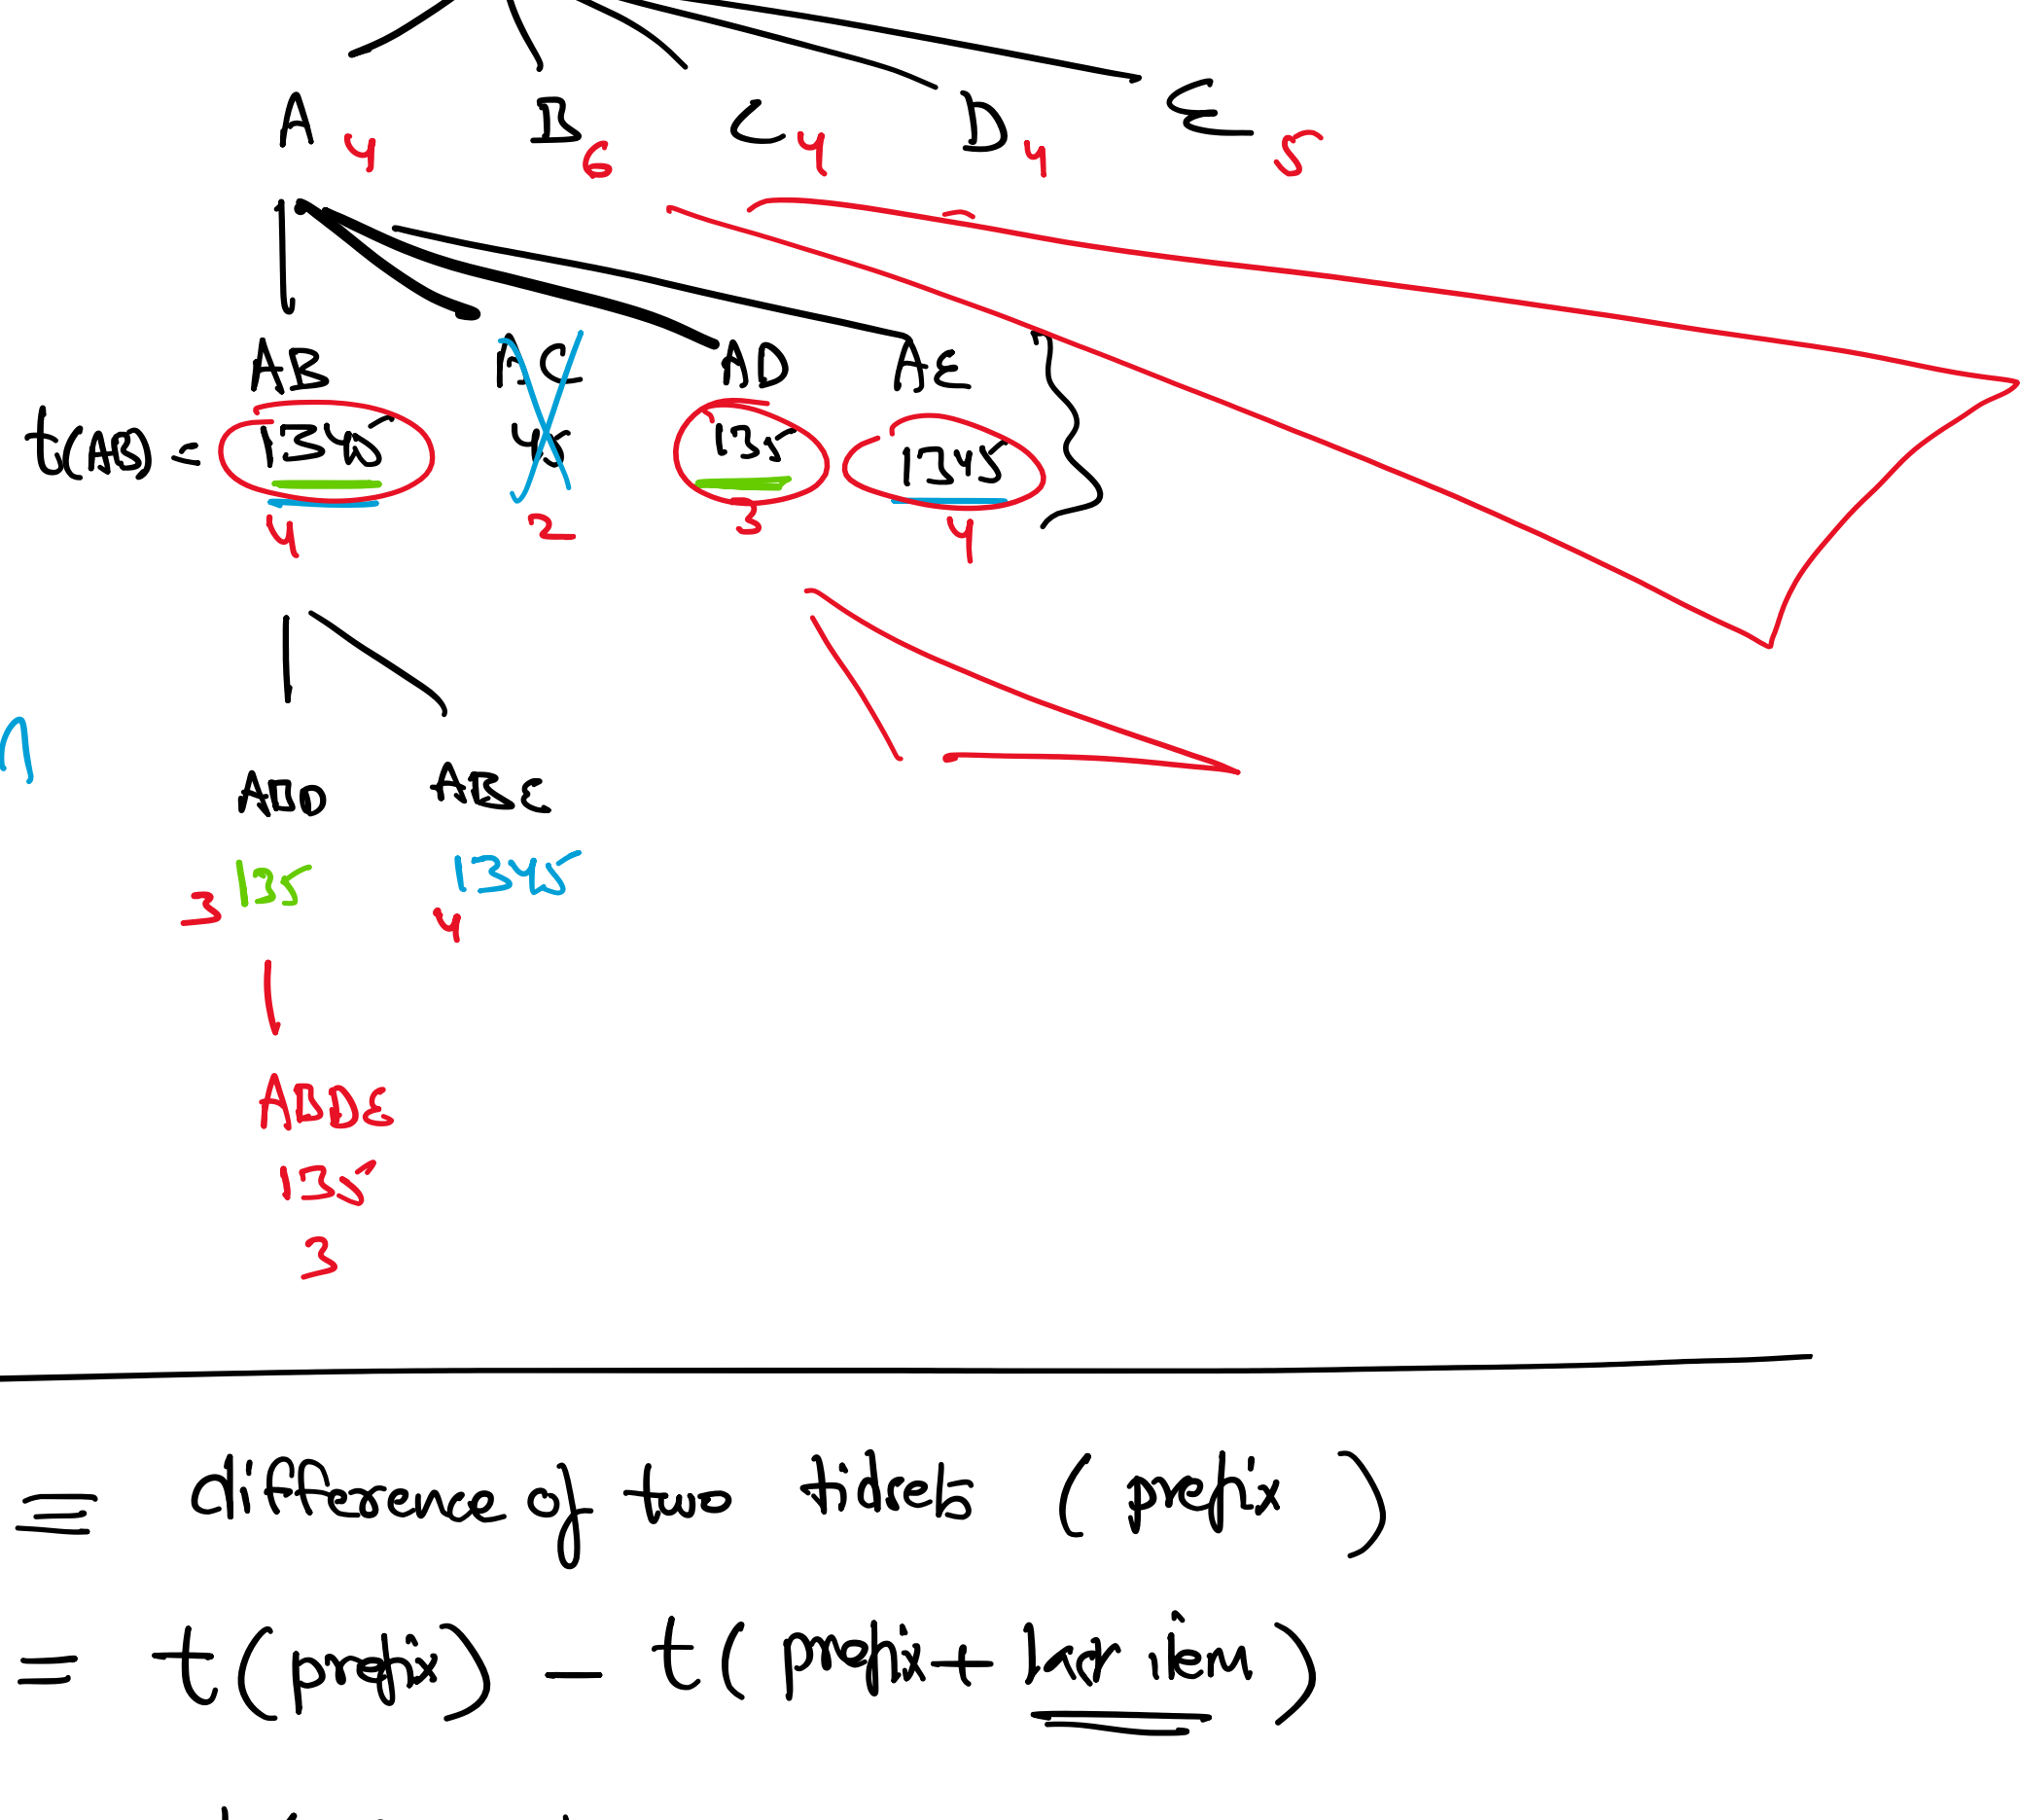 A 4 B 6 C 4 D 4 E 5
AB AC AD AE
t(AB) = 1345 45 135 1345
4 2 3 4
ABD ABE
135 1345
3 4
ABDE
135
3
= difference of two tidsets ( prefix )
= t(prefix) - t(prefix +